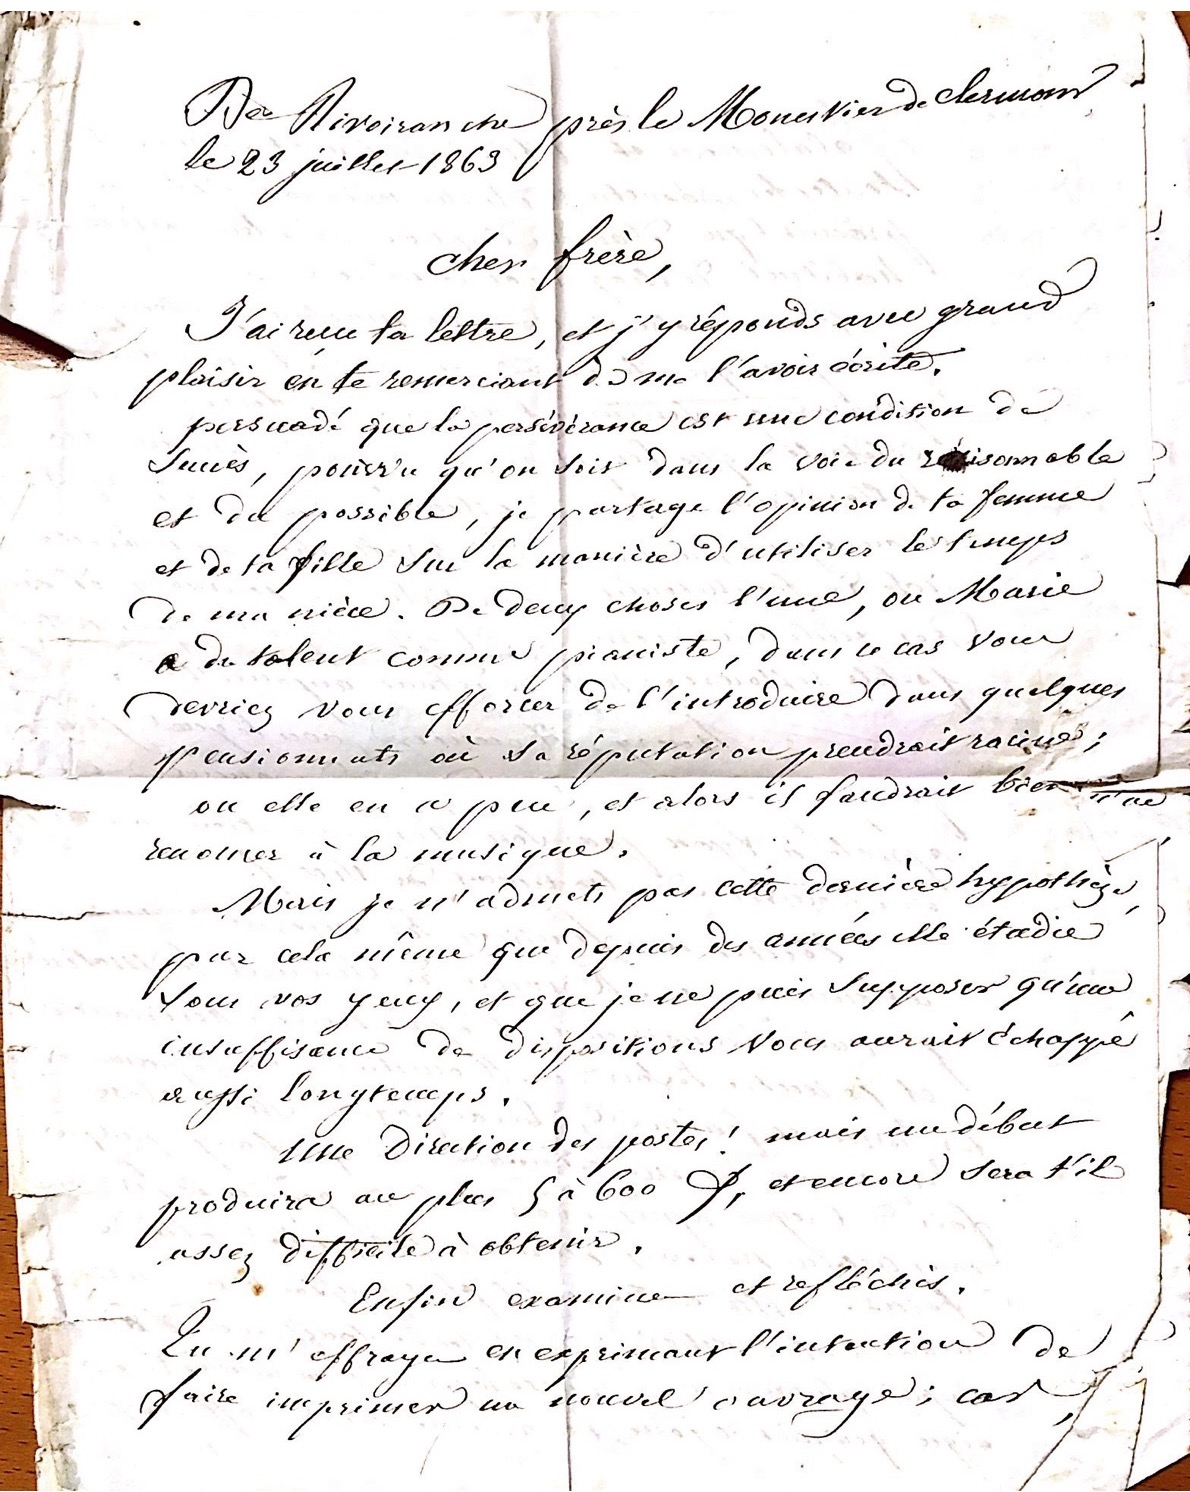 De Rivoiranche près le Monestier de clermont
le 23 juillet 1863
cher frère,
J'ai reçu ta lettre, et j'y réponds avec grand
plaisir en te remerciant de me l'avoir écrite.
persuadé que la persévérance est une condition de
succès, pourvu qu'on soit dans la voie du raisonnable
et du possible, je partage l'opinion de ta femme
et de ta fille sur la manière d'utiliser le temps
de ma nièce. De deux choses l'une, ou Marie
a du talent comme pianiste, dans ce cas vous
devriez vous efforcer de l'introduire dans quelques
pensionnats où sa réputation prendrait racine ;
ou elle en a peu, et alors il faudrait bien
renoncer à la musique.
Mais je n'admets pas cette dernière hypothèse,
par cela même que depuis des années elle étudie
sous vos yeux, et que je ne puis supposer qu'une
insuffisance de dispositions vous aurait échappé
aussi longtemps.
Une Direction des postes ! mais un début
produira au plus 5 à 600 f, et encore sera t'il
assez difficile à obtenir.
Enfin examine et refléchis.
Tu m'effraye en exprimant l'intention de
faire imprimer un nouvel ouvrage ; car,